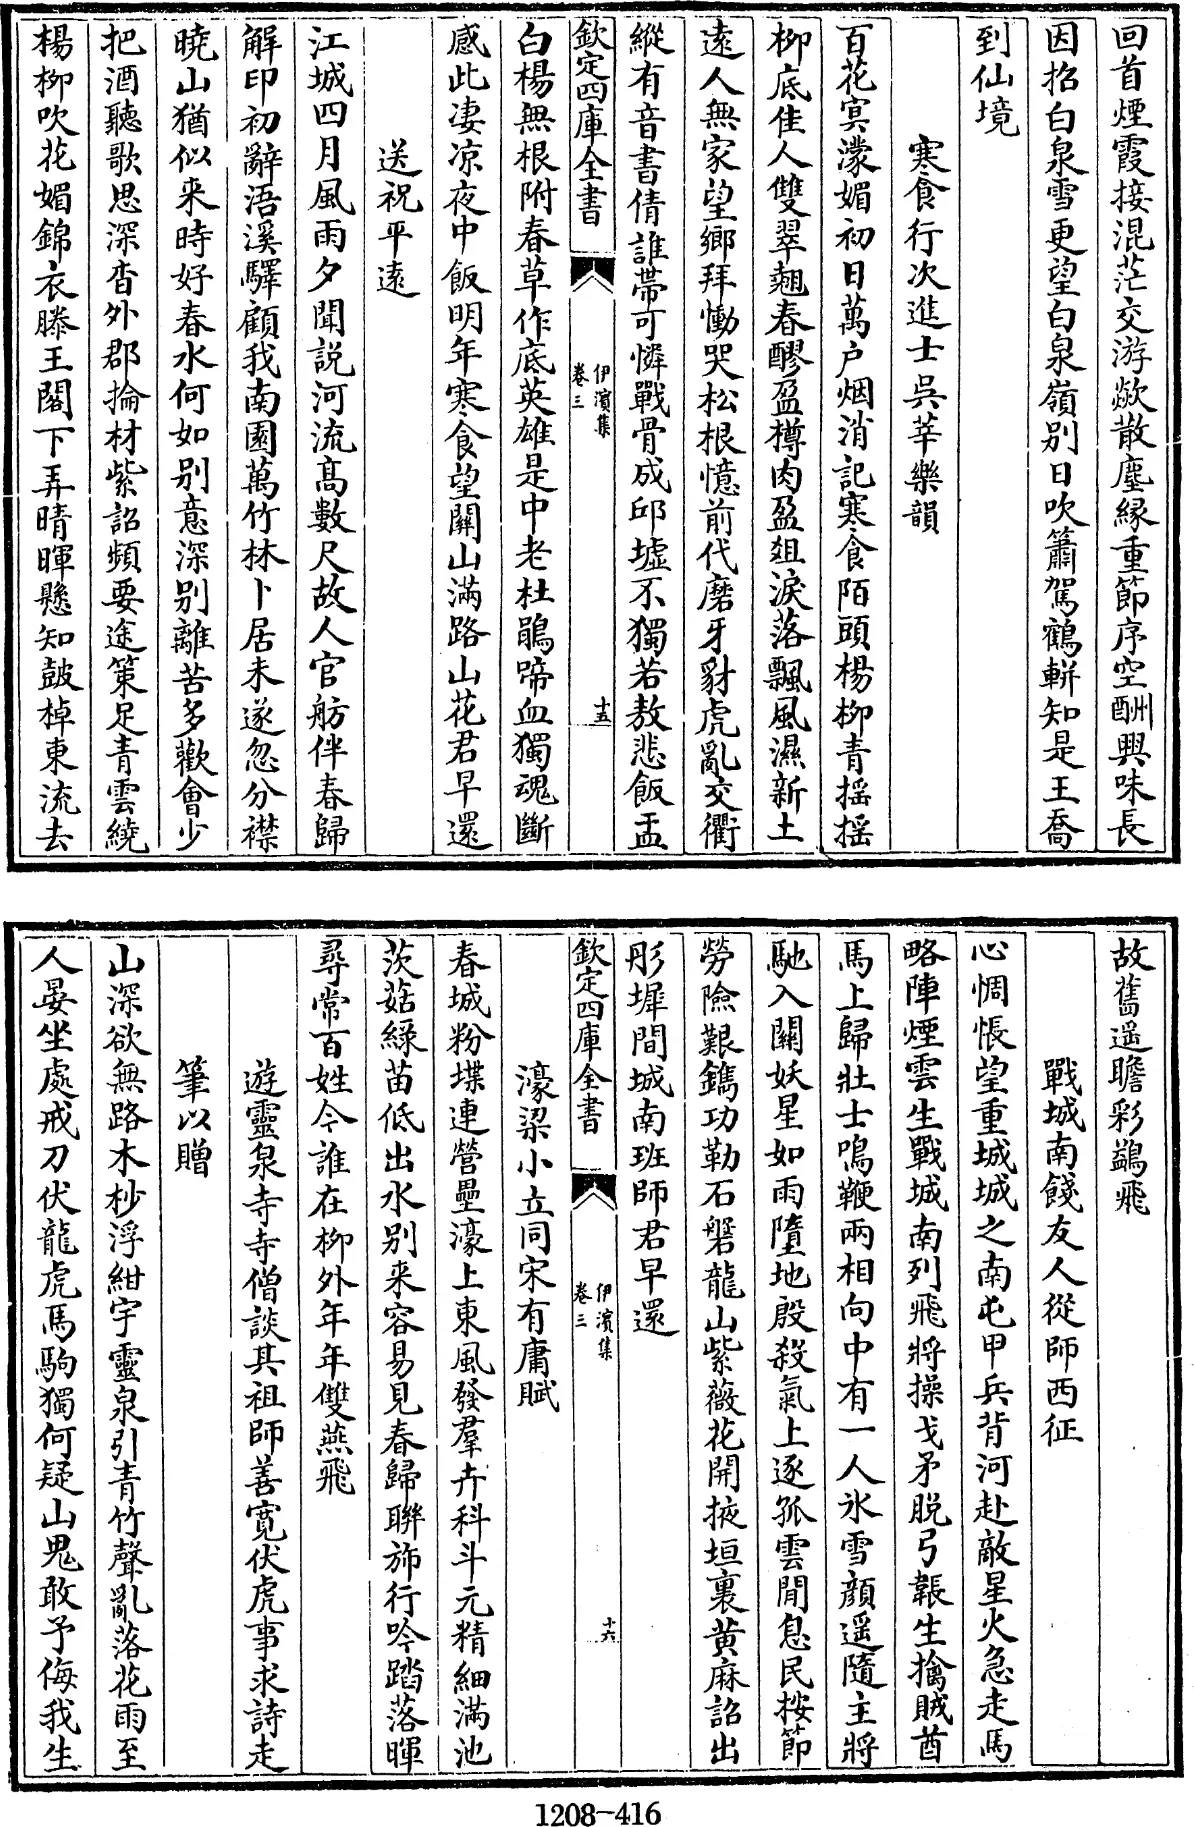 回首煙霞接混茫交游歘散塵縁重節序空酬興味長
因招白泉雪更望白泉嶺别日吹簫駕鶴軿知是王喬
到仙境
寒食行次進士吳莘樂韻
百花㝠濛媚初日萬户烟消記寒食陌頭楊栁青揺揺
栁底佳人雙翠翹春醪盈樽肉盈爼淚落飄風濕新土
逺人無家望鄉拜慟哭松根憶前代磨牙豺虎亂交衢
縱有音書倩誰帶可憐戰骨成邱墟不獨若敖悲飯盂
欽定四庫全書
伊濱集
卷三
十五
白楊無根附春草作底英雄是中老杜鵑啼血獨魂斷
感此凄凉夜中飯明年寒食望關山滿路山花君早還
送祝平逺
江城四月風雨夕聞説河流髙數尺故人官舫伴春歸
解印初辭浯溪驛顧我南園萬竹林卜居未遂忽分襟
曉山猶似来時好春水何如别意深别離苦多歡會少
把酒聽歌思深杳外郡掄材紫詔頻要途策足青雲繞
楊栁吹花媚錦衣滕王閣下弄晴暉懸知皷棹東流去
故舊遥瞻彩鷁飛
戰城南餞友人從師西征
心惆悵望重城城之南屯甲兵背河赴敵星火急走馬
略陣煙雲生戰城南列飛將操戈矛脱弓韔生擒賊酋
馬上歸壯士鳴鞭兩相向中有一人氷雪顔遥隨主將
馳入關妖星如雨墮地殷殺氣上逐孤雲閒息民按節
勞險艱鐫功勒石磐龍山紫薇花開掖垣裏黄麻詔出
彤墀間城南班師君早還
欽定四庫全書
伊濱集
卷三
十六
濠梁小立同宋有庸賦
春城粉堞連營壘濠上東風發羣卉科斗元精細滿池
茨菇緑苗低出水别来容易見春歸聯斾行吟踏落暉
尋常百姓今誰在栁外年年雙燕飛
遊靈泉寺寺僧談其祖師善寛伏虎事求詩走
筆以贈
山深欲無路木杪浮紺宇靈泉引青竹聲亂落花雨至
人晏坐處戒刀伏龍虎馬駒獨何疑山鬼敢予侮我生
1208-416